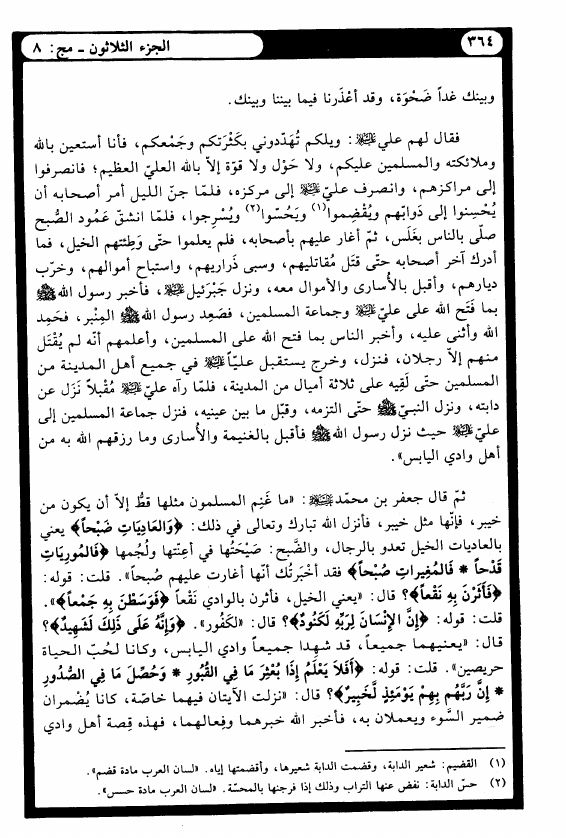 ٣٦٤
الجزء الثلاثون ـ مج: ٨
وبينك غداً ضَحْوَة، وقد أعْذَرنا فيما بيننا وبينك.
فقال لهم علي عليه السلام: ويلكم تُهَدِّدوني بكَثْرَتكم وجَمْعكم، فأنا أستعين بالله
وملائكته والمسلمين عليكم، ولا حَوْل ولا قوّة إلاّ بالله العليّ العظيم؛ فانصرفوا
إلى مراكزهم، وانصرف عليّ عليه السلام إلى مركزه، فلمّا جنّ الليل أمر أصحابه أن
يُحْسِنوا إلى دَوابّهم ويُقْضِموا(١) ويَحُسّوا(٢) ويُسْرِجوا، فلمّا انشقّ عَمُود الصُّبح
صلّى بالناس بغَلَس، ثمّ أغار عليهم بأصحابه، فلم يعلموا حتّى وَطِئتهم الخيل، فما
أدرك آخر أصحابه حتّى قتَل مُقاتليهم، وسبى ذَراريهم، واستباح أموالهم، وخرّب
ديارهم، وأقبل بالأُسارى والأموال معه، ونزل جَبْرَئيل عليه السلام، فأخبر رسول الله ﷺ
بما فتَح الله على عليّ عليه السلام وجماعة المسلمين، فصَعِد رسول الله ﷺ المِنْبر، فحَمِد
الله وأثنى عليه، وأخبر الناس بما فتح الله على المسلمين، وأعلمهم أنّه لم يُقْتَل
منهم إلاّ رجلان، فنزل، وخرج يستقبل عليّاً عليه السلام في جميع أهل المدينة من
المسلمين حتّى لَقِيه على ثلاثة أميال من المدينة، فلمّا رآه عليّ عليه السلام مُقْبلاً نَزَل عن
دابته، ونزل النبيّ ﷺ حتّى التزمه، وقبّل ما بين عينيه، فنزل جماعة المسلمين إلى
عليّ عليه السلام حيث نزل رسول الله ﷺ فأقبل بالغنيمة والأسارى وما رزقهم الله به من
أهل وادي اليابس».
ثمّ قال جعفر بن محمّد عليه السلام: «ما غَنِم المسلمون مثلها قطُّ إلاّ أن يكون من
خيبر، فإنّها مثل خيبر، فأنزل الله تبارك وتعالى في ذلك: ﴿وَالعَادِيَاتِ ضَبْحاً﴾ يعني
بالعاديات الخيل تعدو بالرجال، والضَّبح: صَيْحَتُها في أعِنّتها ولُجُمها ﴿فَالمُورِيَاتِ
قَدْحاً * فَالمُغِيراتِ صُبْحاً﴾ فقد أخبَرتُك أنّها أغارت عليهم صُبحاً». قلت: قوله:
﴿فَأَثَرْنَ بِهِ نَقْعاً﴾؟ قال: «يعني الخيل، فأثرن بالوادي نَقْعاً ﴿فَوَسَطْنَ بِهِ جَمْعاً﴾».
قلت: قوله: ﴿إِنَّ الإِنْسَانَ لِرَبِّهِ لَكَنُودٌ﴾؟ قال: «لَكَفُور». ﴿وَإِنَّهُ عَلَى ذَلِكَ لَشَهِيدٌ﴾؟
قال: «يعنيهما جميعاً، قد شهدا جميعاً وادي اليابس، وكانا لحُبّ الحياة
حريصين». قلت: قوله: ﴿أَفَلاَ يَعْلَمُ إِذَا بُعْثِرَ مَا فِي القُبُورِ * وَحُصِّلَ مَا فِي الصُّدُورِ
* إِنَّ رَبَّهُم بِهِمْ يَوْمَئِذٍ لَّخَبِيرٌ﴾؟ قال: «نزلت الآيتان فيهما خاصّة، كانا يُضْمران
ضمير السُّوء ويعملان به، فأخبر الله خبرهما وفِعالهما، فهذه قِصة أهل وادي
(١) القضيم: شعير الدابة، وقضمت الدابة شعيرها، وأقضمتها إياه. «لسان العرب مادة قضم».
(٢) حسّ الدابة: نفض عنها التراب وذلك إذا فرجنها بالمحسّة. «لسان العرب مادة حسس».